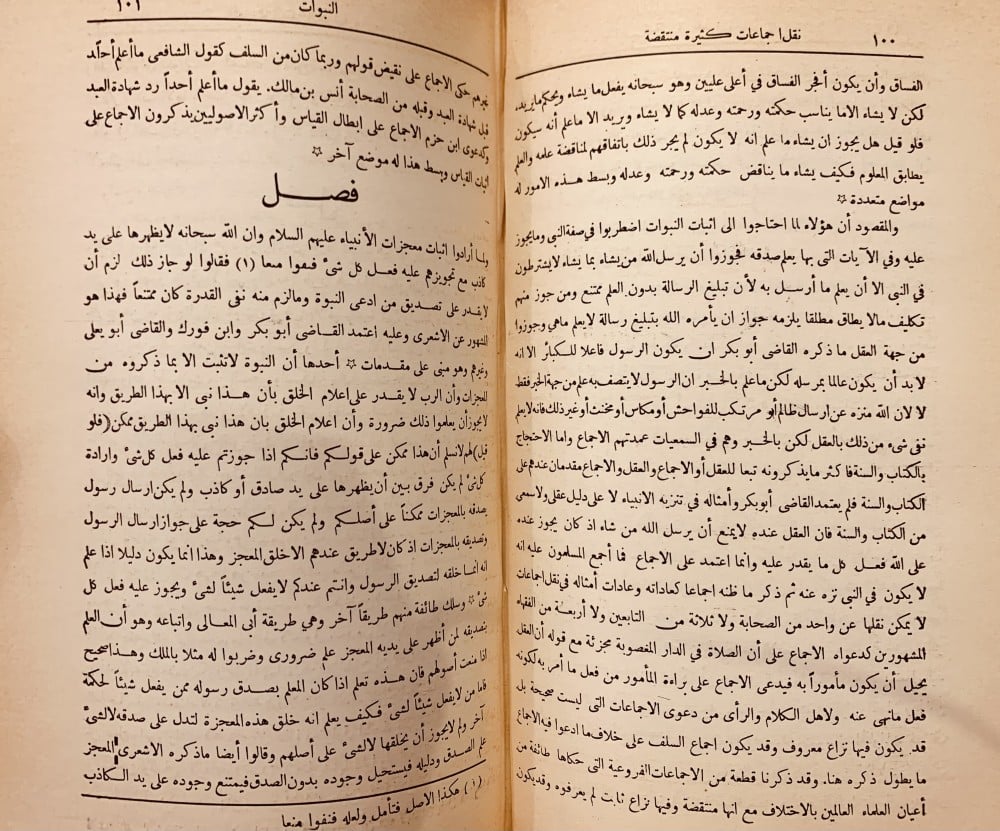 ١٠٠
نقل اجماعات كثيرة منتقضة
الفساق وأن يكون أفجر الفساق في أعلى عليين وهو سبحانه يفعل ما يشاء ويحكم ما يريد
لكن لا يشاء الا ما يناسب حكمته ورحمته وعدله كما لا يشاء ويريد الا ما علم أنه سيكون
فلو قيل هل يجوز ان يشاء ما علم انه لا يكون لم يجز ذلك باتفاقهم لمناقضة علمه والعلم
يطابق المعلوم فكيف يشاء ما يناقض حكمته ورحمته وعدله وبسط هذه الامور له
مواضع متعددة ☆
والمقصود أن هؤلاء لما احتاجوا الى اثبات النبوات اضطربوا في صفة النبى وما يجوز
عليه وفي الآيات التى بها يعلم صدقه فجوزوا أن يرسل الله من يشاء بما يشاء لا يشترطون
في النبى الا أن يعلم ما أرسل به لأن تبليغ الرسالة بدون العلم ممتنع ومن جوز منهم
تكليف مالا يطاق مطلقا يلزمه جواز ان يأمره الله بتبليغ رسالة لا يعلم ماهي وجوزوا
من جهة العقل ما ذكره القاضى أبو بكر ان يكون الرسول فاعلا للكبائر الا انه
لا بد أن يكون عالما بمرسله لكن ما علم بالخبر ان الرسول لا يتصف به علم من جهة الخبر فقط
لا لان الله منزه عن ارسال ظالم أو مرتكب للفواحش أو مكاس أو مخنث أو غير ذلك فانه لا يعلم
نفى شيء من ذلك بالعقل لكن بالخبر وهم في السمعيات عمدتهم الاجماع واما الاحتجاج
بالكتاب والسنة فاكثر ما يذكرونه تبعا للعقل أو الاجماع والعقل والاجماع مقدمان عندهم على
الكتاب والسنة فلم يعتمد القاضى أبو بكر وأمثاله في تنزيه الانبياء لا على دليل عقلى ولا سمعى
من الكتاب والسنة فان العقل عنده لا يمنع أن يرسل الله من شاء اذ كان يجوز عنده
على الله فعل كل ما يقدر عليه وانما اعتمد على الاجماع فما أجمع المسلمون عليه انه
لا يكون في النبى نزه عنه ثم ذكر ما ظنه اجماعا كعاداته وعادات أمثاله في نقل اجماعات
لا يمكن نقلها عن واحد من الصحابة ولا ثلاثة من التابعين ولا أربعة من الفقهاء
المشهورين كدعواه الاجماع على أن الصلاة في الدار المغصوبة مجزئة مع قوله أن العقل
يحيل أن يكون مأموراً به فيدعى الاجماع على براءة المأمور من فعل ما أمر به لكونه
فعل مانهى عنه ولاهل الكلام والرأى من دعوى الاجماعات التى ليست صحيحة بل
قد يكون فيها نزاع معروف وقد يكون اجماع السلف على خلاف ما ادعوا فيه الاجماع
ما يطول ذكره هنا. وقد ذكرنا قطعة من الاجماعات الفروعية التى حكاها طائفة من
أعيان العلماء العالمين بالاختلاف مع انها منتقضة وفيها نزاع ثابت لم يعرفوه وقد يكون
النبوات
١٠١
غيرهم حكى الاجماع على نقيض قولهم وربما كان من السلف كقول الشافعى ما أعلم أحداً
قبل شهادة العبد وقبله من الصحابة أنس بن مالك. يقول ما أعلم أحداً رد شهادة العبد
وكدعوى ابن حزم الاجماع على ابطال القياس وأكثر الاصوليين يذكرون الاجماع على
اثبات القياس وبسط هذا له موضع آخر ☆
فصل
ولما أرادوا اثبات معجزات الأنبياء عليهم السلام وان الله سبحانه لا يظهرها على يد
كاذب مع تجويزهم عليه فعل كل شئ فنفوا معا (١) فقالوا لو جاز ذلك لزم أن
لا يقدر على تصديق من ادعى النبوة ومالزم منه نفى القدرة كان ممتنعاً فهذا هو
المشهور عن الاشعرى وعليه اعتمد القاضى أبو بكر وابن فورك والقاضى أبو يعلى
وغيرهم وهو مبنى على مقدمات ☆ أحدها أن النبوة لا تثبت الا بما ذكروه من
المعجزات وأن الرب لا يقدر على اعلام الخلق بأن هذا نبى الا بهذا الطريق وانه
لا يجوز أن يعلموا ذلك ضرورة وأن اعلام الخلق بان هذا نبى بهذا الطريق ممكن (فلو
قيل) لهم لا نسلم أن هذا ممكن على قولكم فانكم اذا جوزتم عليه فعل كل شئ وارادة
كل شئ لم يكن فرق بين أن يظهرها على يد صادق أو كاذب ولم يكن ارسال رسول
يصدقه بالمعجزات ممكناً على أصلكم ولم يكن لكم حجة على جواز ارسال الرسول
وتصديقه بالمعجزات اذ كان لا طريق عندهم الا خلق المعجز وهذا انما يكون دليلا اذا علم
انه انما خلقه لتصديق الرسول وانتم عندكم لا يفعل شيئاً لشئ ويجوز عليه فعل كل
شئ ☆ وسلك طائفة منهم طريقاً آخر وهي طريقة أبى المعالى واتباعه وهو أن العلم
بتصديقه لمن أظهر على يديه المعجز علم ضرورى وضربوا له مثلا بالملك وهذا صحيح
اذا منعت أصولهم فان هذه تعلم اذا كان المعلم بصدق رسوله ممن يفعل شيئاً لحكمة
فاما من لا يفعل شيئاً لشئ فكيف يعلم انه خلق هذه المعجزة لتدل على صدقه لا لشئ
آخر ولم لا يجوز أن يخلقها لا لشئ على أصلهم وقالوا أيضا ما ذكره الاشعرى المعجز
علم الصدق ودليله فيستحيل وجوده بدون الصدق فيمتنع وجوده على يد الكاذب
(١) هكذا الاصل فتأمل ولعله فنفوا منعا